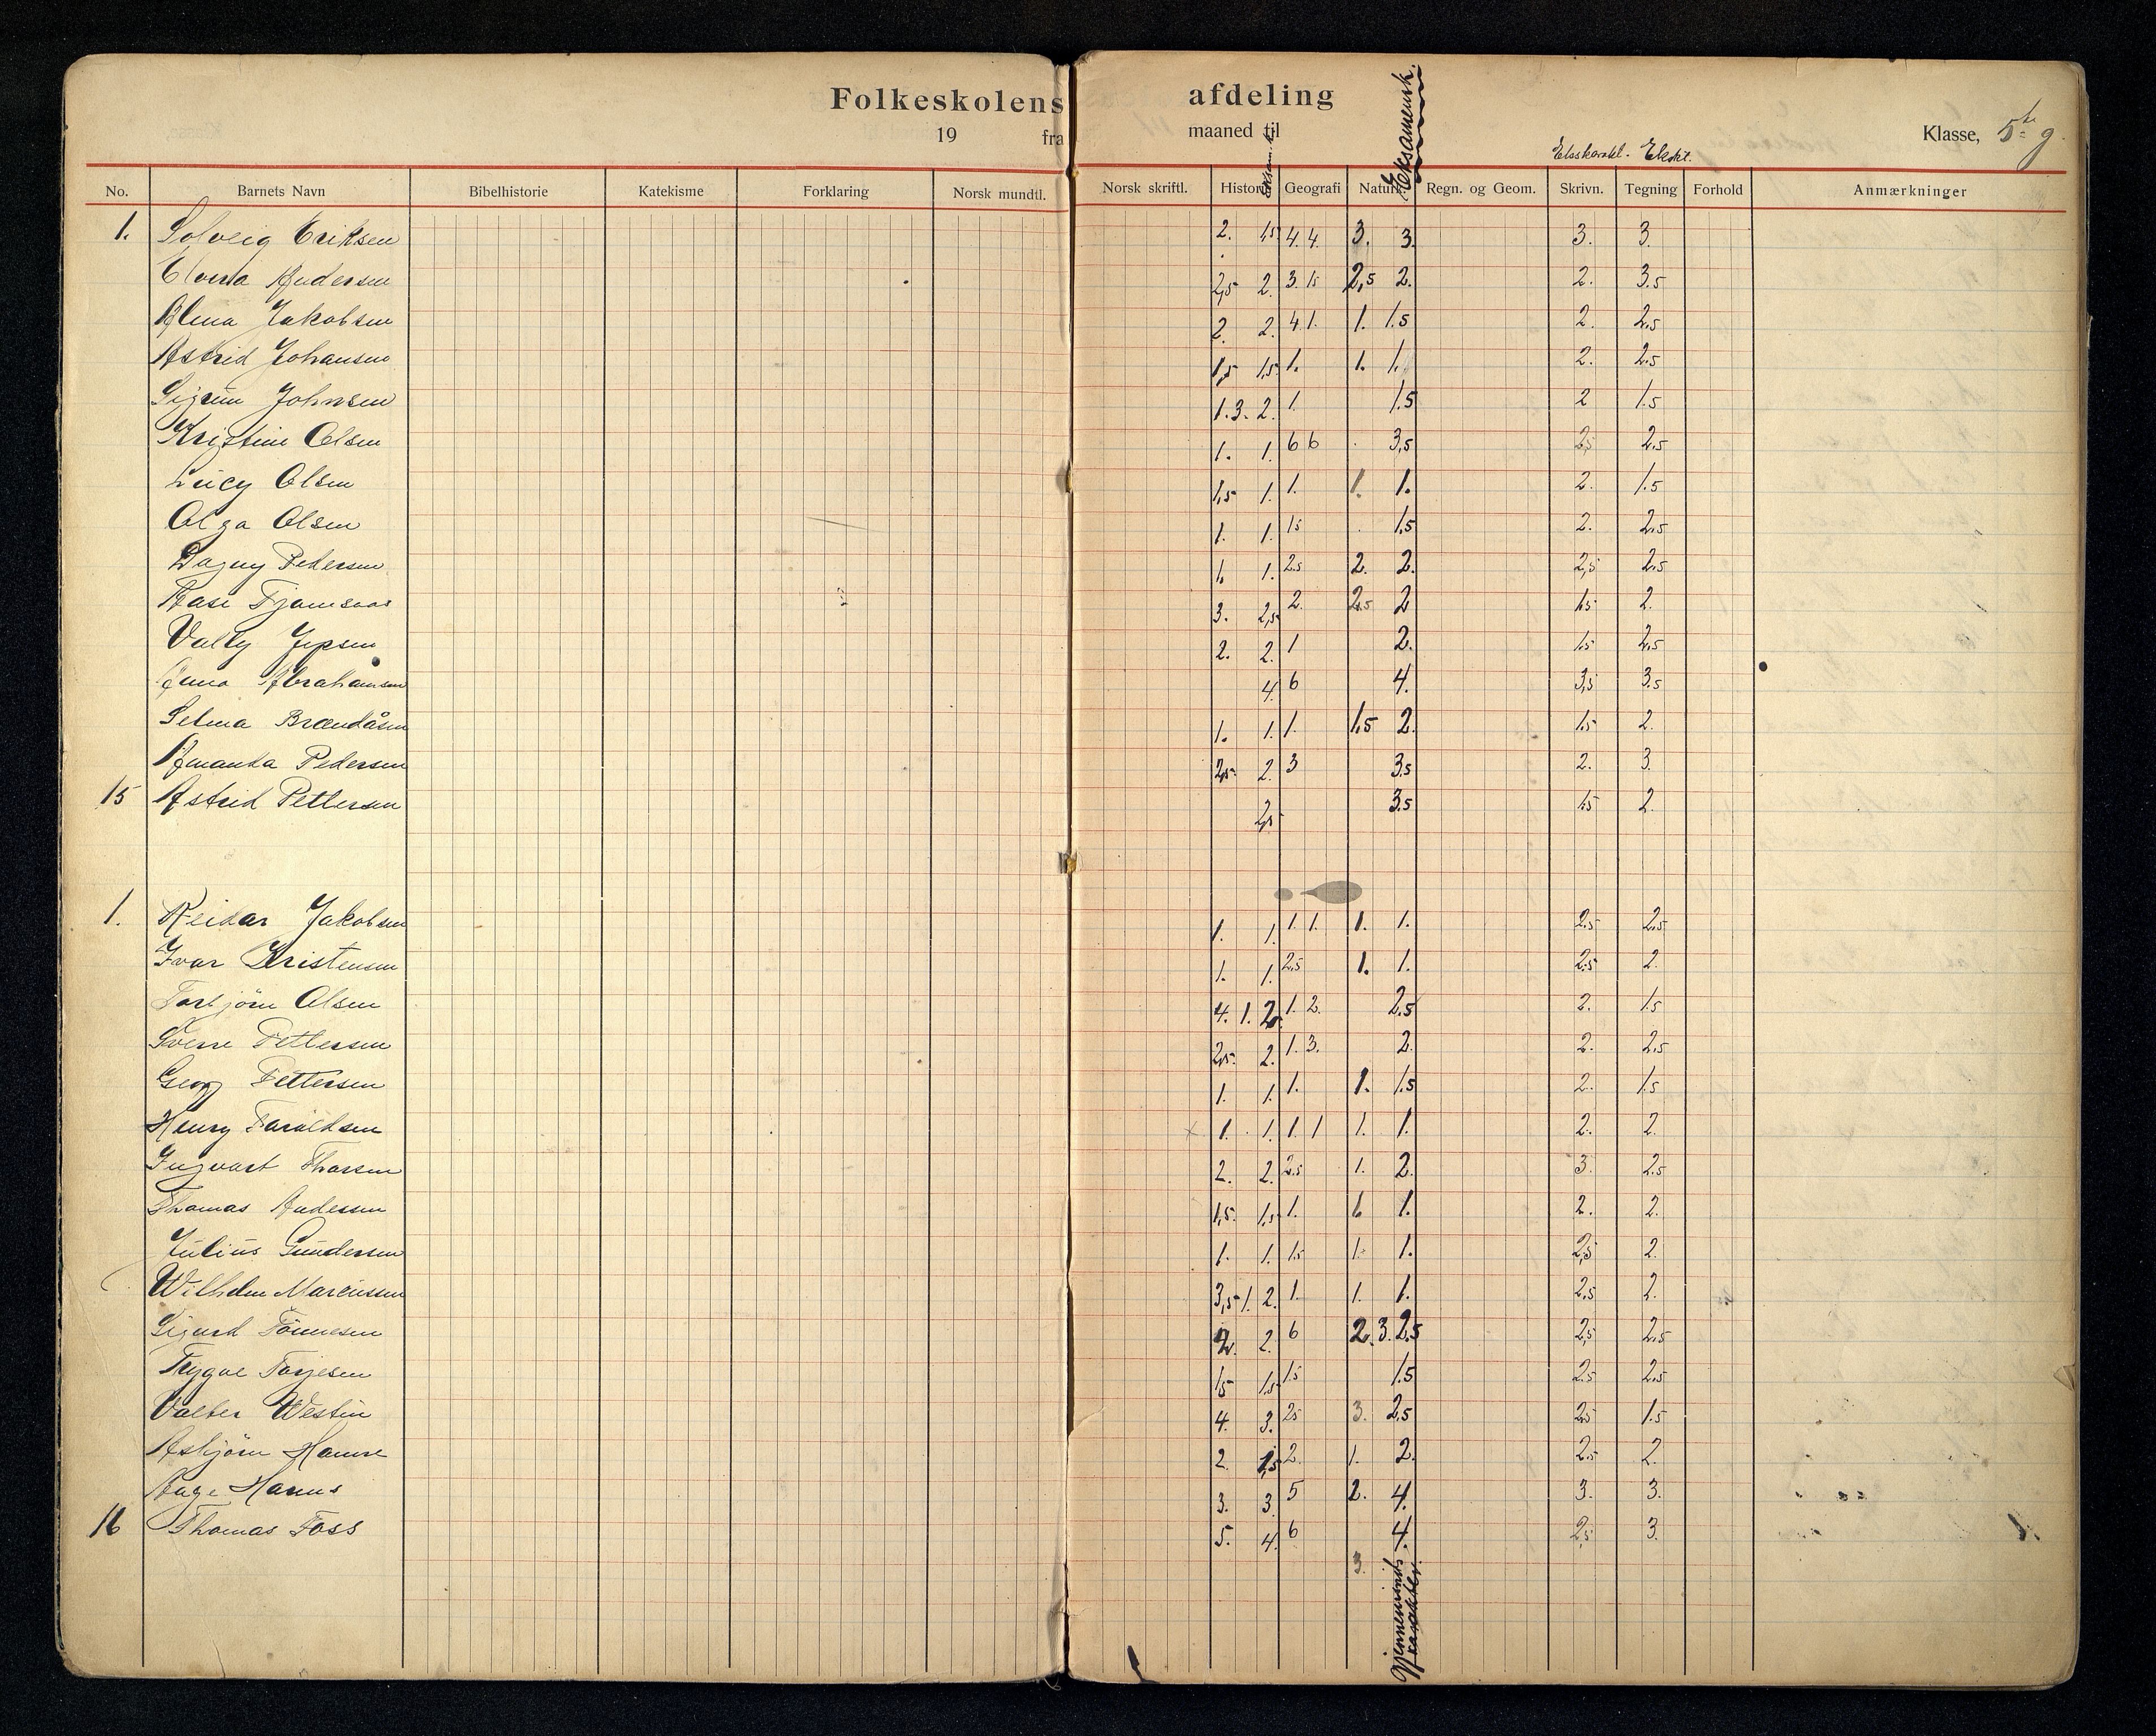 Folkeskolens afdeling
19 fra maaned til Klasse, 5te g.
Eksamensk.
No. Barnets Navn Bibelhistorie Katekisme Forklaring Norsk mundtl. Norsk skriftl. Historie Geografi Naturk. Regn. og Geom. Skrivn. Tegning Forhold Anmærkninger
1. Solveig Eriksen 2. 1,5 4. 4. 3. 3. 3. 3.
Andersen 2,5 2. 3. 1.5 2,5 2. 2. 3.5
Alma Jakobsen 2. 2. 4 1. 1. 1.5 2. 2.5
Astrid Johansen 1,5 1,5 1. 1. 1. 2. 2.5
Sigrun Johnsen 1. 3. 2. 1. 1.5 2 1.5
Kristine Olsen 1. 1. 6 6 3,5 2,5 2.5
Lucy Olsen 1,5 1. 1. 1. 1. 2. 1.5
Olga Olsen 1. 1. 1.5 1.5 2. 2.5
Dagny Pedersen 1. 1. 2.5 2. 2. 2,5 2.5
Aase 3. 2,5 2. 2.5 2 1.5 2.
Vally Jepsen 2. 2. 1 2. 1.5 2.5
Anna Abrahamsen 4. 6 4. 3,5 3.5
Selma Brændåsen 1. 1. 1. 1,5 2. 1.5 2.
Amanda Pedersen 2,5 2. 3 3.5 2. 3.
15 Astrid Pettersen 2,5 3.5 1.5 2.
1. Reidar Jakobsen 1. 1. 1. 1. 1. 1. 2.5 2.5
Ivar Kristensen 1. 1. 2.5 1. 1. 2.5 2.
Torbjörn Olsen 4. 1. 2,5 1. 2. 2.5 2. 1.5
Sverre Pettersen 2,5 2. 1. 3. 2. 2. 2.5
Georg Pettersen 1. 1. 1. 1. 1.5 2. 1.5
Henry Taraldsen x 1. 1. 1. 1 1. 1. 2. 2.
Ingvart Thorsen 2. 2. 2.5 1. 2. 3. 2.5
Thomas Andersen 1,5 1,5 1. 1. 1. 2. 2.
Julius Gundersen 1. 1. 1.5 1. 1. 2,5 2.
Wilhelm Marcussen 3,5 1. 2. 1. 1. 1. 2.5 2.
Sigurd Tönnesen 2. 2. 6 2. 3. 2.5 2,5 2.5
Trygve Torjesen 1,5 1,5 1.5 1.5 2.5 2.5
Valter Westin 4. 3. 2.5 3. 2.5 2.5 1.5
Asbjörn Hamre 2. 1,5 2. 1. 2. 2.5 2.
Aage Hanus 3. 3. 5 2. 4. 3. 3.
16 Thomas Foss 5. 4. 6 4. 2,5 3.
3.
Gjennemsnits
karakter.